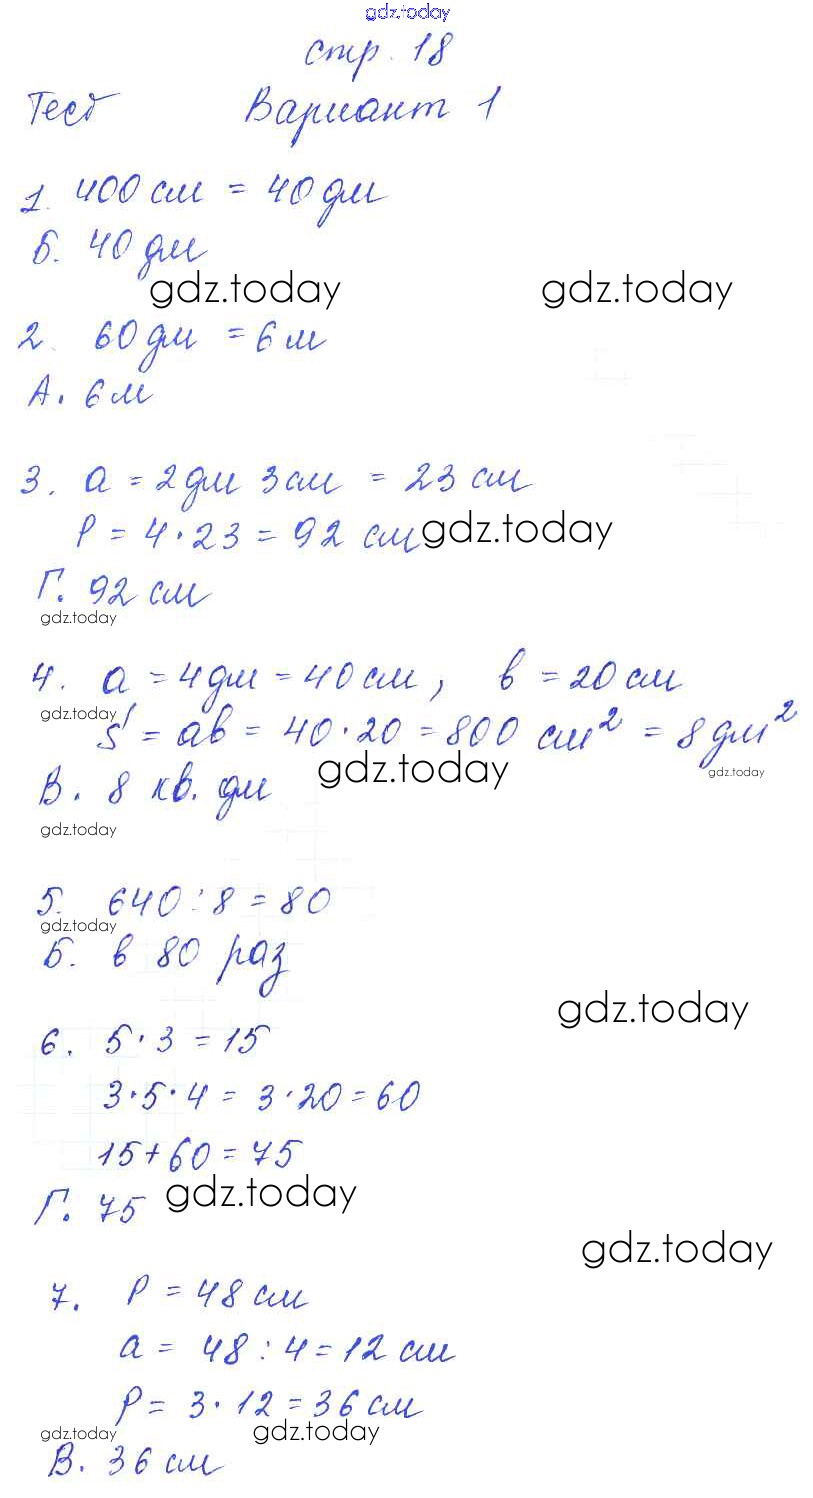 gdz.today
стр. 18
Тест Вариант 1
1. 400 см = 40 дм
Б. 40 дм
gdz.today gdz.today
2. 60 дм = 6 м
А. 6 м
3. а = 2 дм 3 см = 23 см
Р = 4 · 23 = 92 см gdz.today
Г. 92 см
gdz.today
4. а = 4 дм = 40 см, в = 20 см
gdz.today
S = ав = 40 · 20 = 800 см² = 8 дм²
gdz.today gdz.today
В. 8 кв. дм
gdz.today
5. 640 : 8 = 80
gdz.today
Б. в 80 раз
gdz.today
6. 5 · 3 = 15
3 · 5 · 4 = 3 · 20 = 60
15 + 60 = 75
Г. 75 gdz.today
gdz.today
7. Р = 48 см
а = 48 : 4 = 12 см
Р = 3 · 12 = 36 см
gdz.today gdz.today
В. 36 см